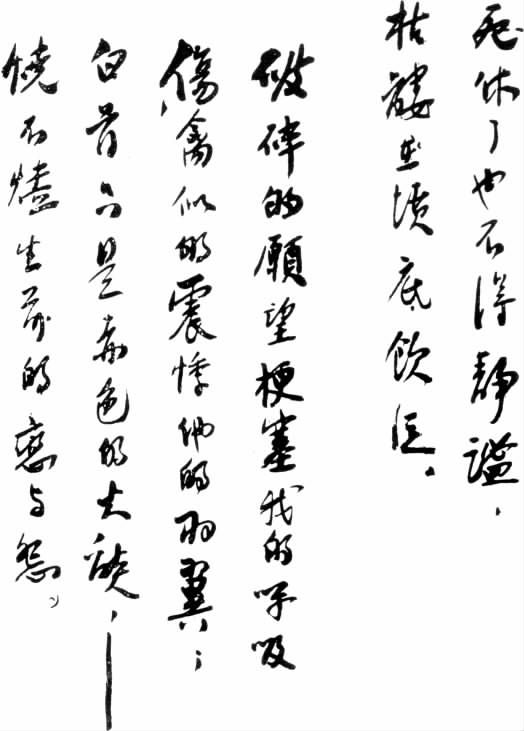 死休了也不得靜謐，
枯髏在墳底飲泣。
破碎的願望梗塞我的呼吸
傷禽似的震悸他的羽翼；
白骨是赤色的火燄，——
燒不燼生前的戀与怨。